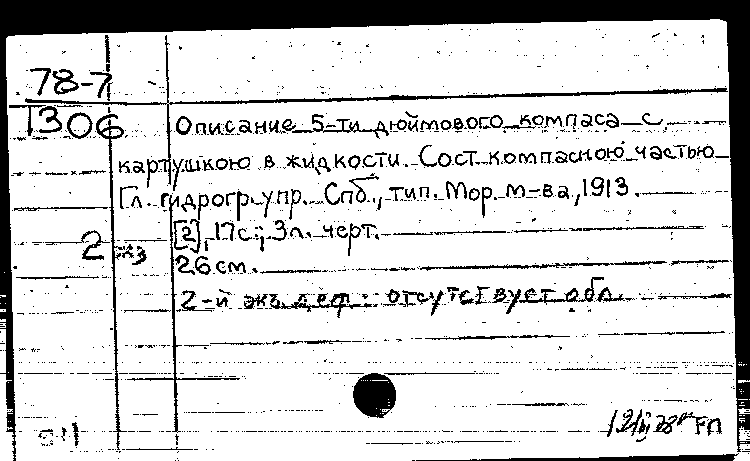 78-7
1306
Описание 5-ти дюймового компаса с
картушкою в жидкости. Сост. компасною частью
Гл. гидрогр. упр. Спб., тип. Мор. м-ва, 1913.
[2], 17с.; 3л. черт.
2 экз
26 см.
2-й экз. деф.: отсутствует обл.
ГП